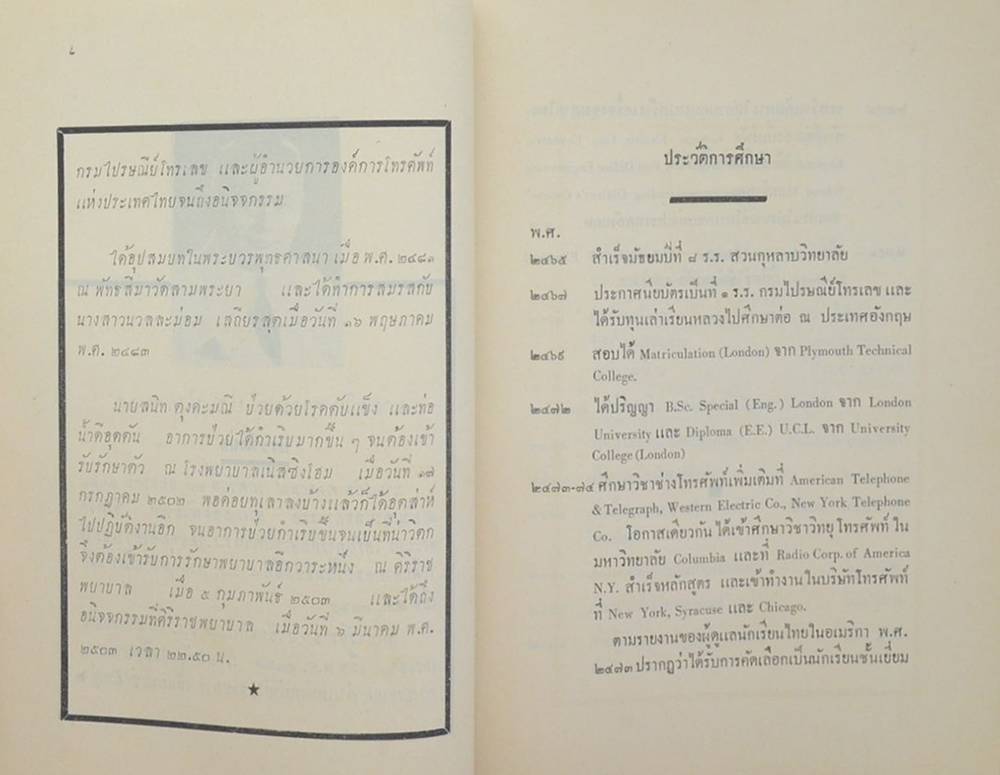 ๘
กรมไปรษณีย์โทรเลข และผู้อำนวยการองค์การโทรศัพท์
แห่งประเทศไทยจนถึงอนิจจกรรม
ได้อุปสมบทในพระบวรพุทธศาสนา เมื่อ พ.ศ. ๒๔๘๓
ณ พัทธสีมาวัดสามพระยา และได้ทำการสมรสกับ
นางสาวนวลละม่อม เสถียรสุตเมื่อวันที่ ๑๖ พฤษภาคม
พ.ศ. ๒๔๘๓
นายสนิท ดุงคะมณี ป่วยด้วยโรคตับแข็ง และท่อ
น้ำดีอุดตัน อาการป่วยได้กำเริบมากขึ้น ๆ จนต้องเข้า
รับรักษาตัว ณ โรงพยาบาลเนิสซิงโฮม เมื่อวันที่ ๑๗
กรกฎาคม ๒๕๐๒ พอค่อยทุเลาลงบ้างแล้วก็ได้อุตส่าห์
ไปปฏิบัติงานอีก จนอาการป่วยกำเริบขึ้นจนเป็นที่น่าวิตก
จึงต้องเข้ารับการรักษาพยาบาลอีกวาระหนึ่ง ณ ศิริราช
พยาบาล เมื่อ ๙ กุมภาพันธ์ ๒๕๐๓ และได้ถึง
อนิจจกรรมที่ศิริราชพยาบาล เมื่อวันที่ ๖ มีนาคม พ.ศ.
๒๕๐๓ เวลา ๒๒.๕๐ น.
ประวัติการศึกษา
พ.ศ.
๒๔๖๕ สำเร็จมัธยมปีที่ ๘ ร.ร. สวนกุหลาบวิทยาลัย
๒๔๖๗ ประกาศนียบัตรเป็นที่ ๑ ร.ร. กรมไปรษณีย์โทรเลข และ
ได้รับทุนเล่าเรียนหลวงไปศึกษาต่อ ณ ประเทศอังกฤษ
๒๔๖๙ สอบได้ Matriculation (London) จาก Plymouth Technical
College.
๒๔๗๒ ได้ปริญญา B.Sc. Special (Eng.) London จาก London
University และ Diploma (E.E.) U.C.L. จาก University
College (London)
๒๔๗๓-๗๔ ศึกษาวิชาช่างโทรศัพท์เพิ่มเติมที่ American Telephone
& Telegraph, Western Electric Co., New York Telephone
Co. โอกาสเดียวกัน ได้เข้าศึกษาวิชาวิทยุโทรศัพท์ ใน
มหาวิทยาลัย Columbia และที่ Radio Corp. of America
N.Y. สำเร็จหลักสูตร และเข้าทำงานในบริษัทโทรศัพท์
ที่ New York, Syracuse และ Chicago.
ตามรายงานของผู้ดูแลนักเรียนไทยในอเมริกา พ.ศ.
๒๔๗๓ ปรากฏว่าได้รับการคัดเลือกเป็นนักเรียนชั้นเยี่ยม